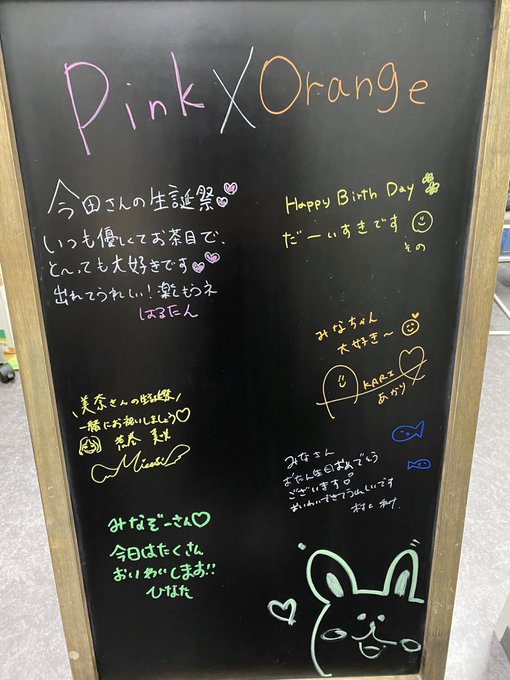 Pink X Orange
今田さんの生誕祭
いつも優しくてお茶目で、
と〜っても大好きです
出れてうれしい!楽しもうネ
はるたん
Happy Birth Day
だーいすきです
その
みなちゃん
大好き〜
AKARI
あかり
美奈さんの生誕祭
一緒にお祝いしましょう♡
美咲
みなさん
お誕生日おめでとう
ございます
おいわいできてうれしいです
村上
みなぞーさん♡
今日はたくさん
おいわいします!!
ひなた